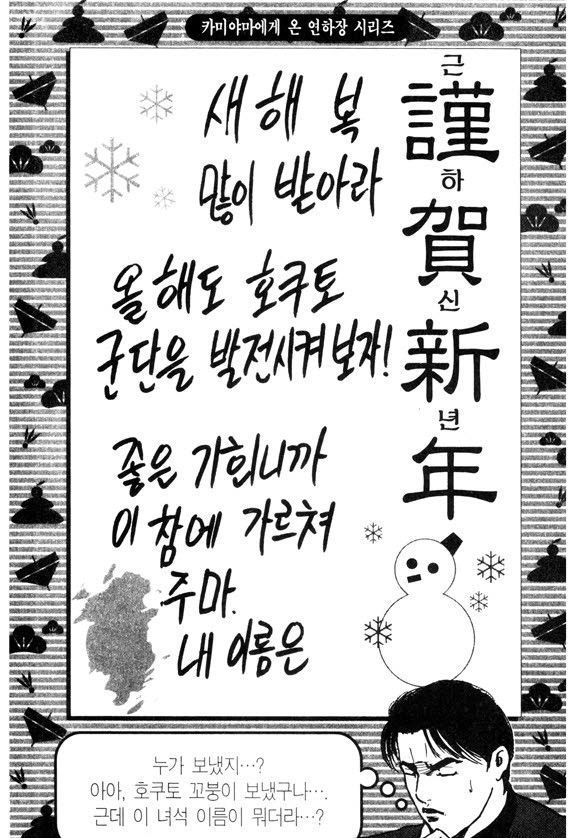 카미야마에게 온 연하장 시리즈
근
謹
하
賀
신
新
년
年
새해 복
많이 받아라
올해도 호쿠토
군단을 발전시켜보자!
좋은 기회니까
이 참에 가르쳐
주마.
내 이름은
누가 보냈지…?
아아, 호쿠토 꼬붕이 보냈구나….
근데 이 녀석 이름이 뭐더라…?